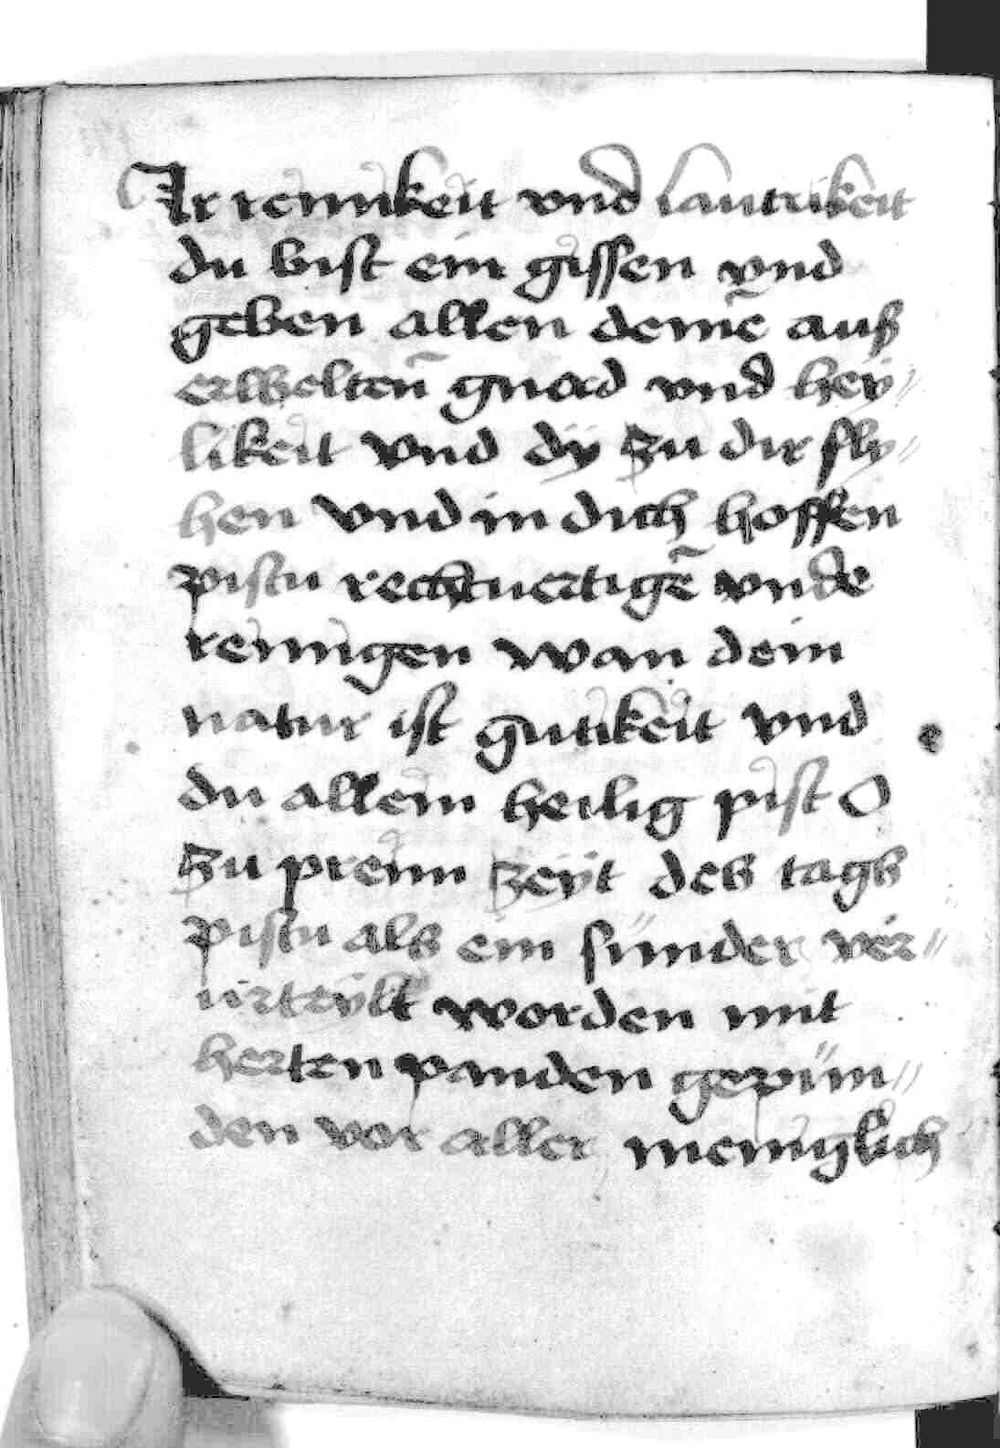 Ir reinikeit vnd lautrikeit
du bist ein gissen vnd
geben allen deinē auß
erwelten̄ gnad vnd hey〃
likeit vnd dÿ zu dir fly〃
hen vnd in dich hoffen
pistu rechtuertigē vnde
reinigen wan dein
natur ist gutikeit vnd
du allein heilig pist O
zu preim zeÿt des tags
pistu als ein sünder ver〃
urteÿlt worden mit
herten panden gepün〃
den vor aller meniglich